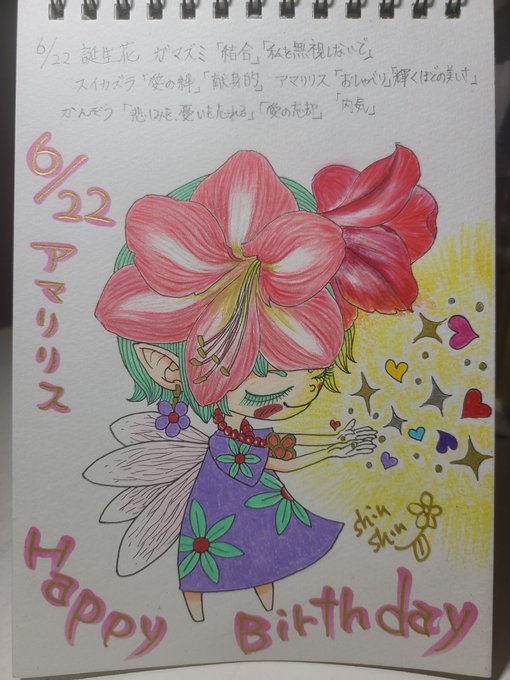 6/22 誕生花 ガマズミ「結合」「私を無視しないで」
スイカズラ「愛の絆」「献身的」 アマリリス「おしゃべり」「輝くほどの美しさ」
かんぞう「悲しみを、憂いを忘れる」「愛の忘却」「内気」
6/22 アマリリス
shin
shin
Happy Birthday